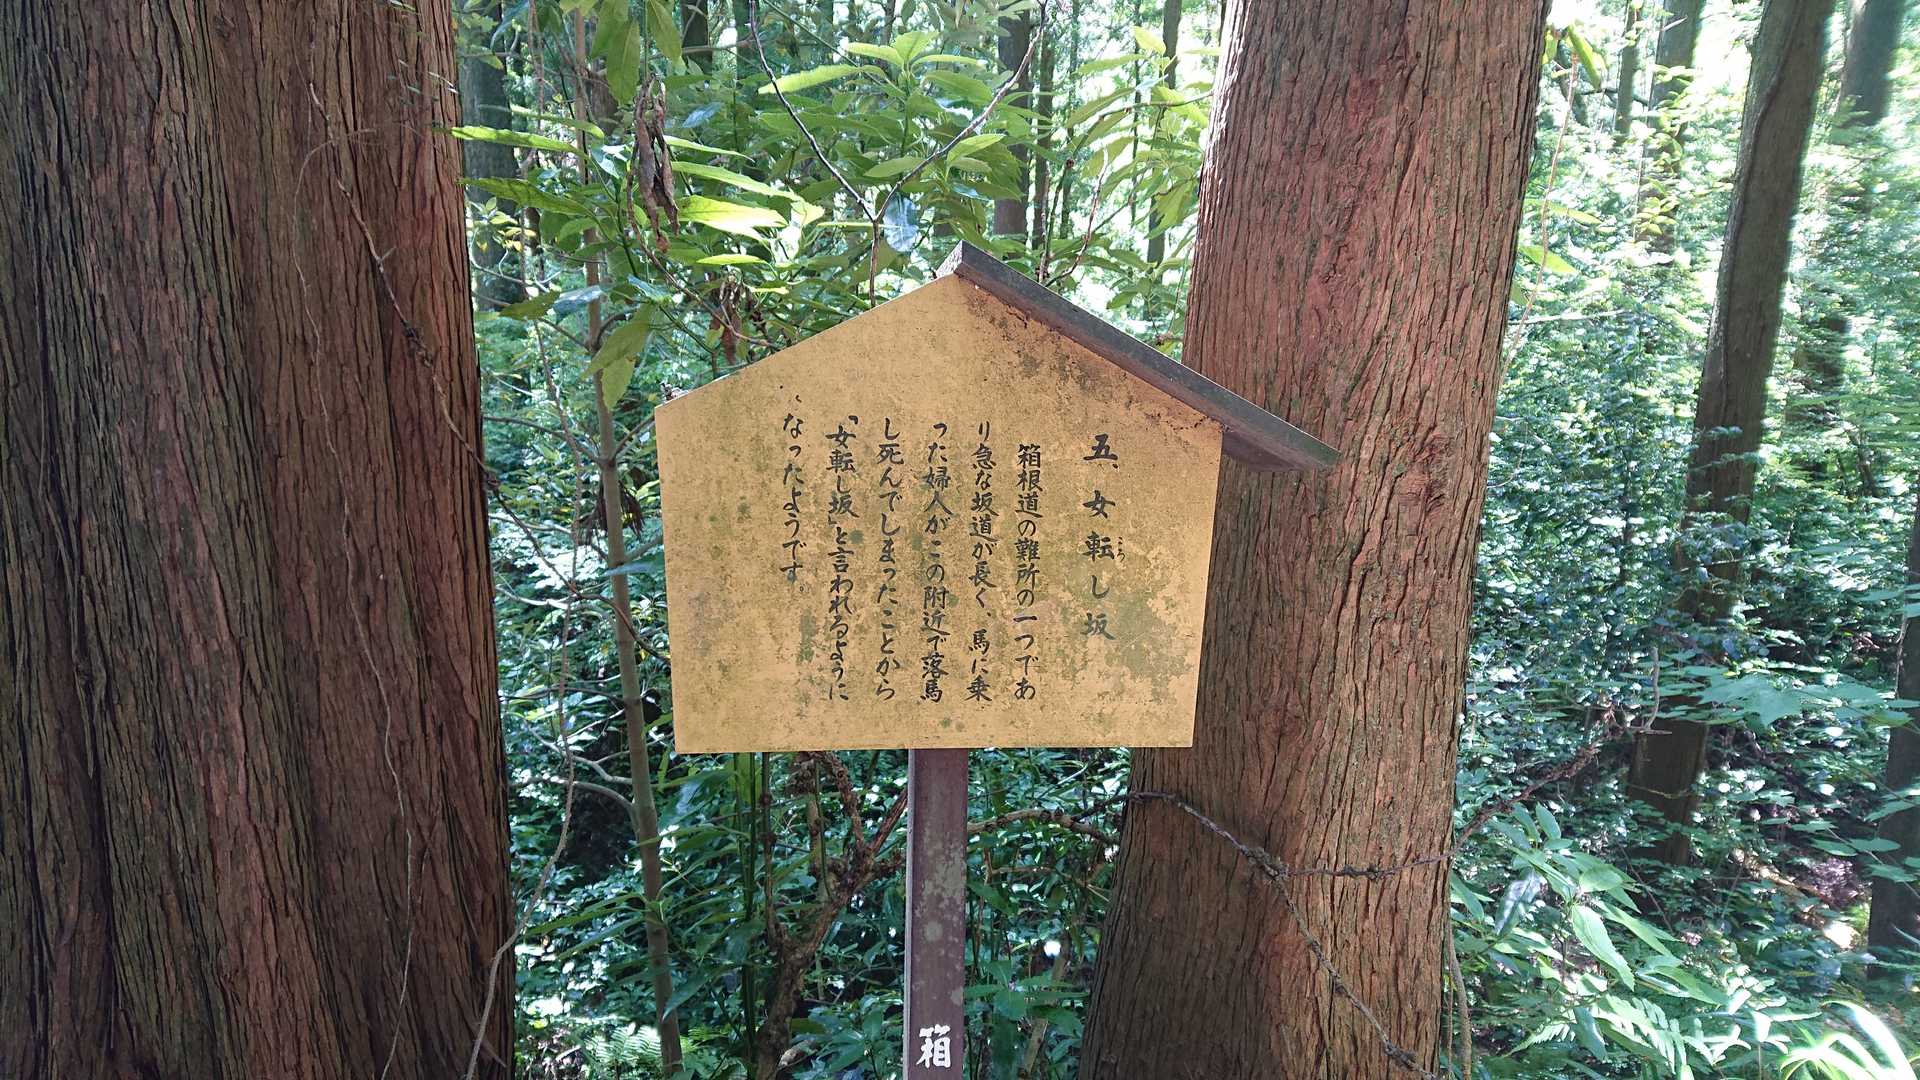 五、女転し坂
ころ
箱根道の難所の一つであ
り急な坂道が長く、馬に乗
った婦人がこの附近で落馬
し死んでしまったことから
「女転し坂」と言われるように
なったようです。
箱